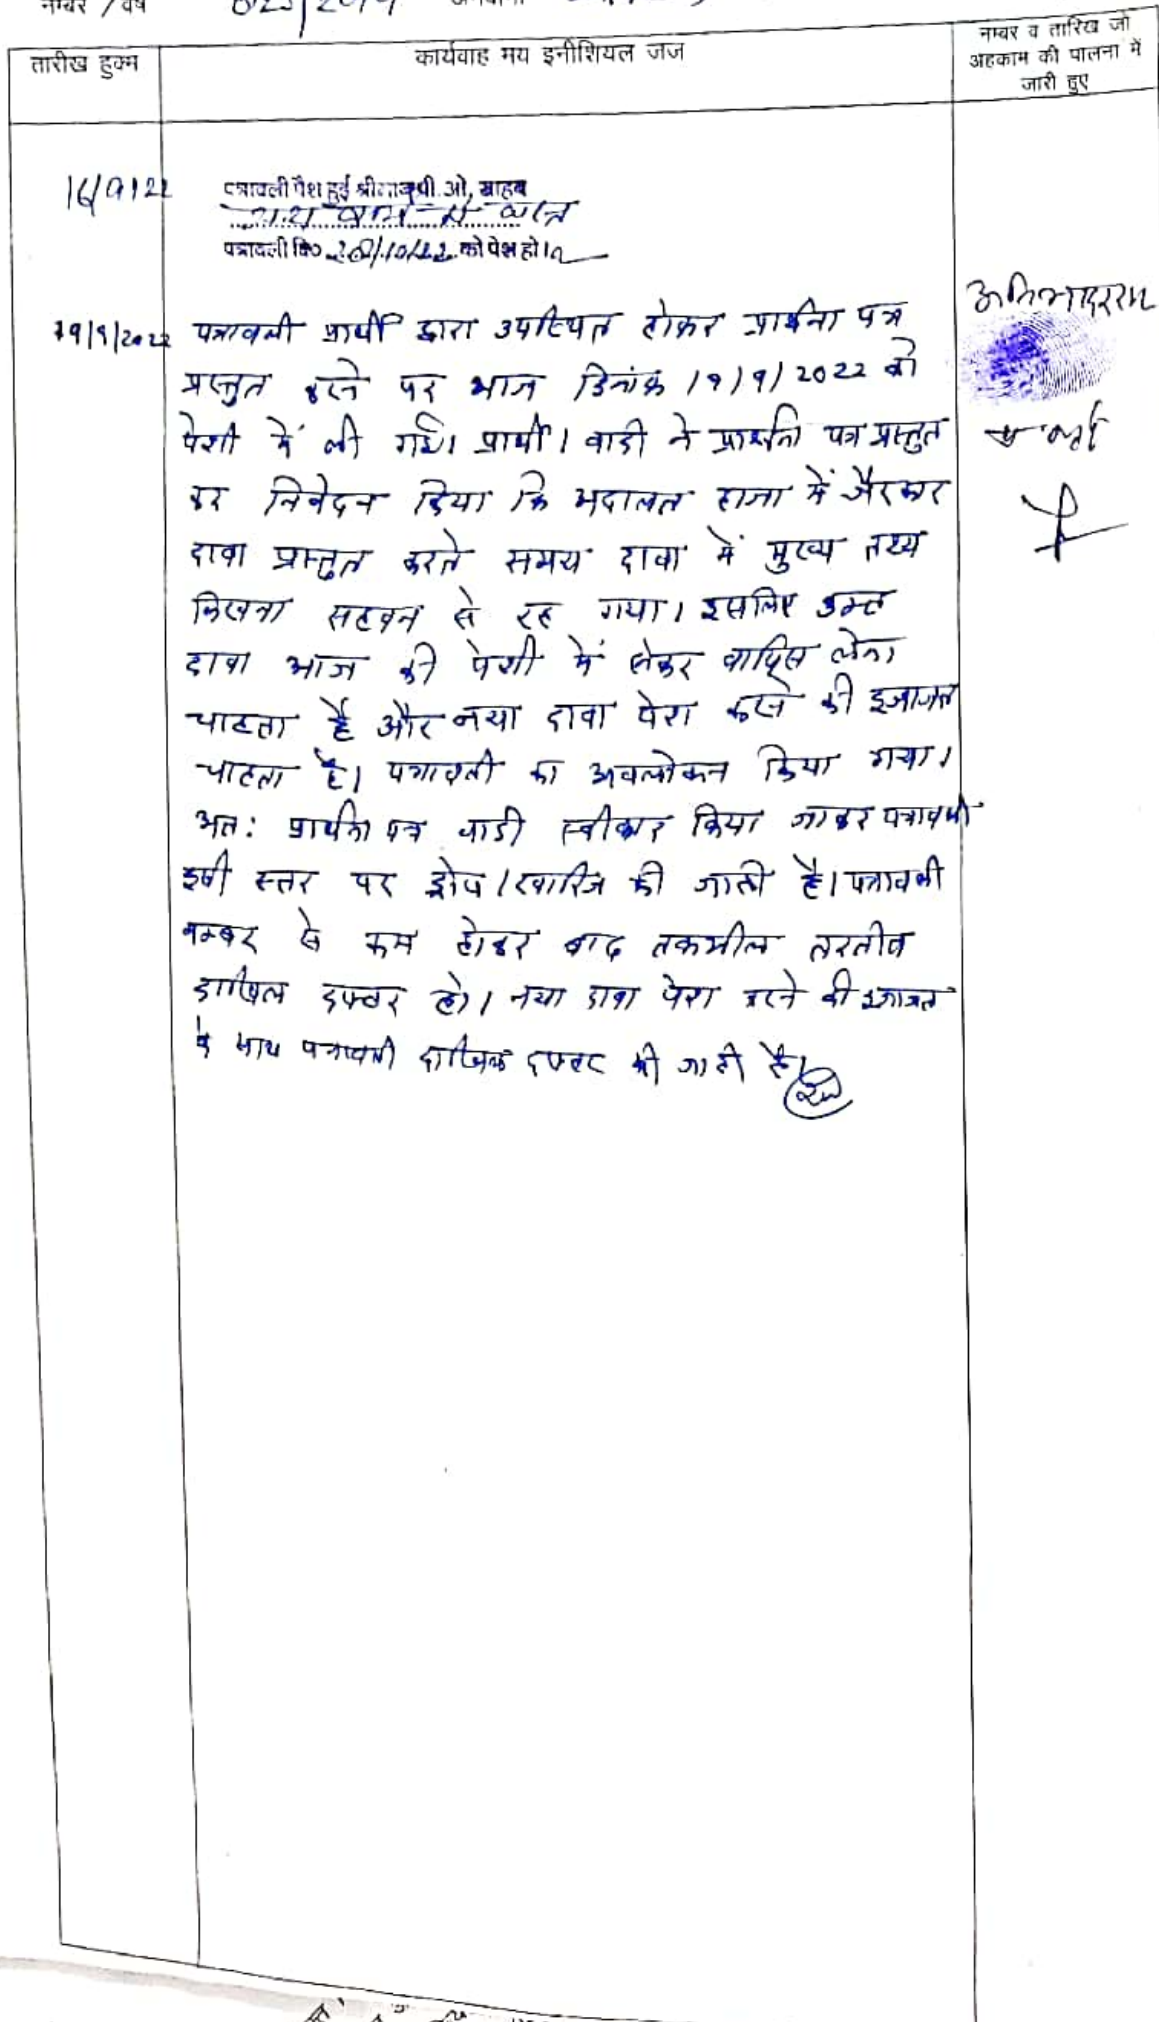 नम्बर / वर्ष
तारीख हुक्म
कार्यवाह मय इनीशियल जज
नम्बर व तारिख जो
अहकाम की पालना में
जारी हुए
16/9/22
पत्रावली पेश हुई श्रीमान् पी. ओ. साहब
पत्रावली दि० 20/10/22 को पेश हो।
19/9/2022 पत्रावली प्रार्थी द्वारा उपस्थित होकर प्रार्थना पत्र
प्रस्तुत करने पर आज दिनांक 19/9/2022 को
पेशी में ली गई। प्रार्थी। वादी ने प्रार्थना पत्र प्रस्तुत
कर निवेदन किया कि अदालत हाजा में
दावा प्रस्तुत करते समय दावा में मुख्य तथ्य
लिखना सहवन से रह गया। इसलिए उक्त
दावा आज की पेशी में लेकर वापिस लेना
चाहता है और नया दावा पेश करने की इजाजत
चाहता है। पत्रावली का अवलोकन किया गया।
अत: प्रार्थना पत्र वादी स्वीकार किया जाकर पत्रावली
इसी स्तर पर ड्रोप / खारिज की जाती है। पत्रावली
नम्बर से कम होकर बाद तकमील तरतीब
दाखिल दफ्तर हो। नया दावा पेश करने की इजाजत
के साथ पत्रावली दाखिल दफ्तर की जाती है।